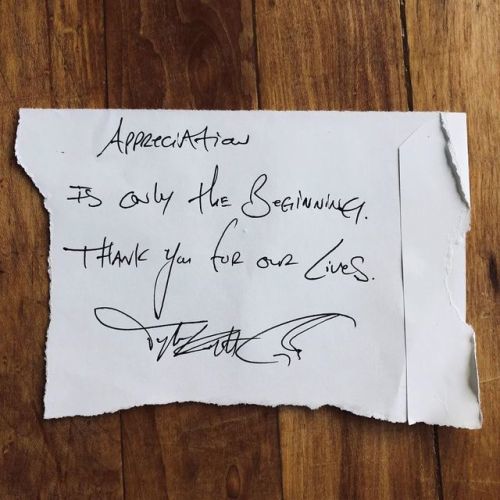 Appreciation
Is only the Beginning.
Thank you for our Lives.